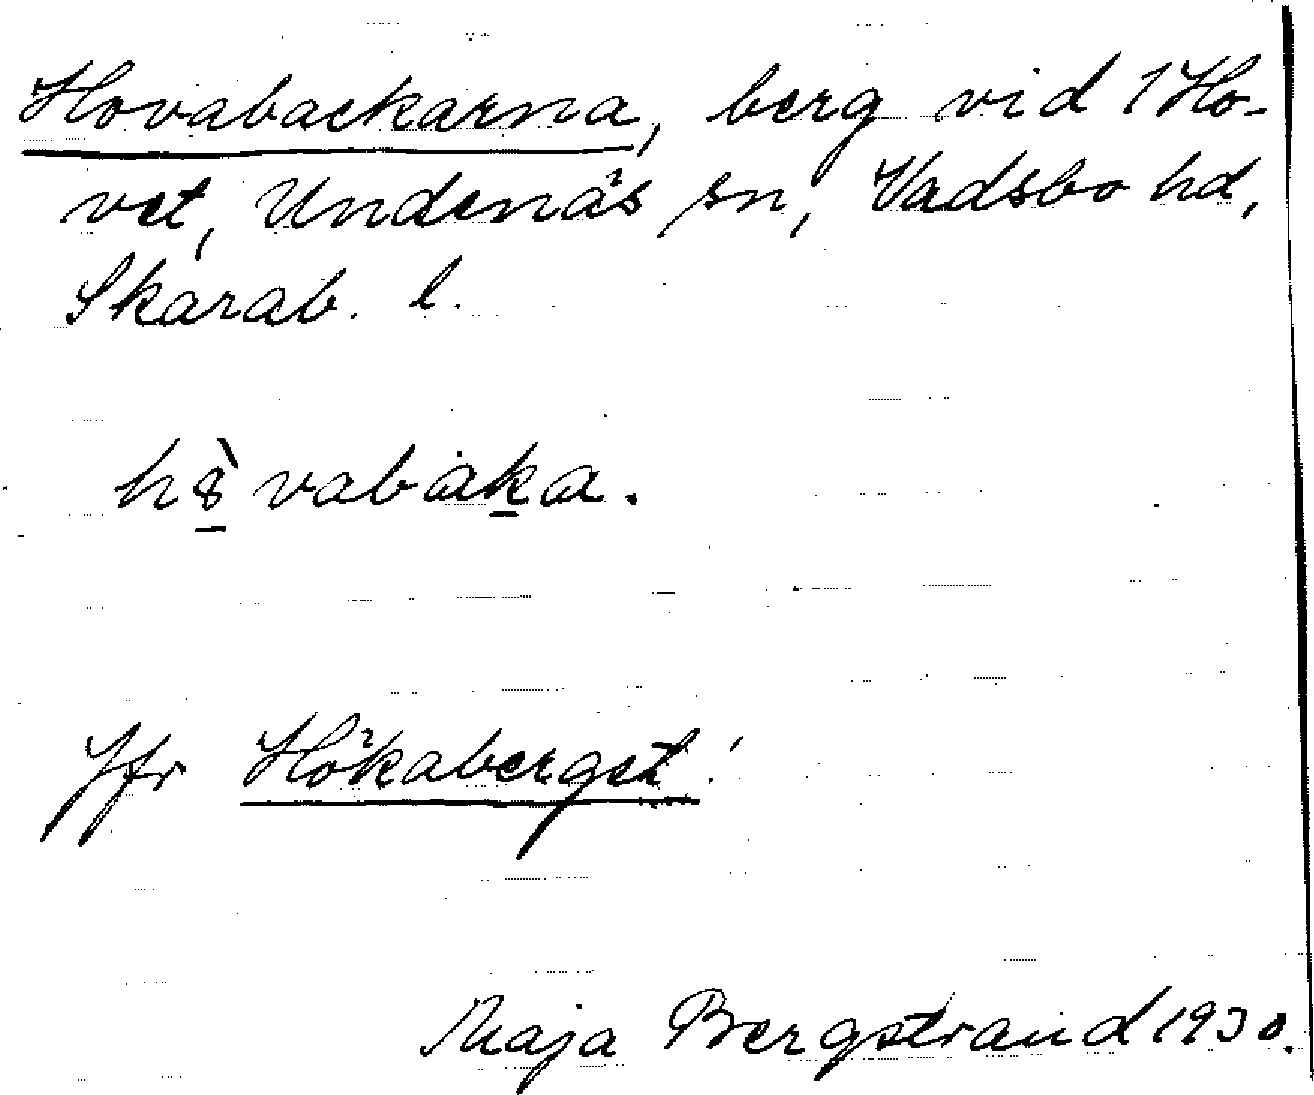 Hovabackarna, berg vid 1 Ho-
vet, Undenäs sn, Vadsbo hd,
Skarab. l.
h8̱̀vabaḵa.
Jfr Hökaberget!
Maja Bergstrand 1930.